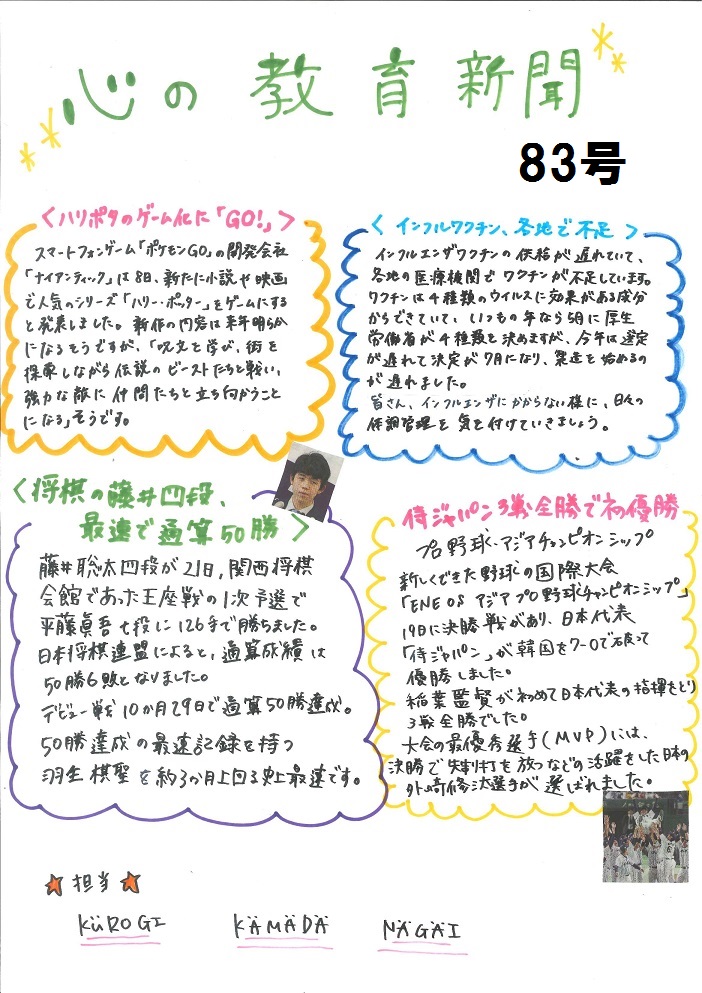 心の教育新聞
83号
<ハリポタのゲーム化に「GO!」>
スマートフォンゲーム「ポケモンGO」の開発会社
「ナイアンティック」は8日、新たに小説や映画
で人気のシリーズ「ハリー・ポッター」をゲームにする
と発表しました。新作の内容は来年明らか
になるそうですが、「呪文を学び、街を
探索しながら伝説のビーストたちと戦い、
強力な敵に仲間たちと立ち向かうこと
になる」そうです。
<インフルワクチン、各地で不足>
インフルエンザワクチンの供給が遅れていて、
各地の医療機関でワクチンが不足しています。
ワクチンは4種類のウイルスに効果がある成分
からできていて、いつもの年なら5月に厚生
労働省が4種類を決めますが、今年は選定
が遅れて決定が7月になり、製造を始めるの
が遅れました。
皆さん、インフルエンザにかからない様に、日々の
体調管理を気を付けていきましょう。
<将棋の藤井四段、
最速で通算50勝>
藤井聡太四段が21日、関西将棋
会館であった王座戦の1次予選で
平藤眞吾七段に126手で勝ちました。
日本将棋連盟によると、通算成績は
50勝6敗となりました。
デビュー戦10か月29日で通算50勝達成。
50勝達成の最速記録を持つ
羽生棋聖を約3か月上回る史上最速です。
侍ジャパン3戦全勝で初優勝
プロ野球・アジアチャンピオンシップ
新しくできた野球の国際大会
「ENEOSアジアプロ野球チャンピオンシップ」
19日に決勝戦があり、日本代表
「侍ジャパン」が韓国を7-0で破って
優勝しました。
稲葉監督が初めて日本代表の指揮をとり
3戦全勝でした。
大会の最優秀選手(MVP)には、
決勝で先制打を放つなどの活躍をした日本の
外崎修汰選手が選ばれました。
★担当★
KÜROGI KÄMÄDÄ NÄGÄI